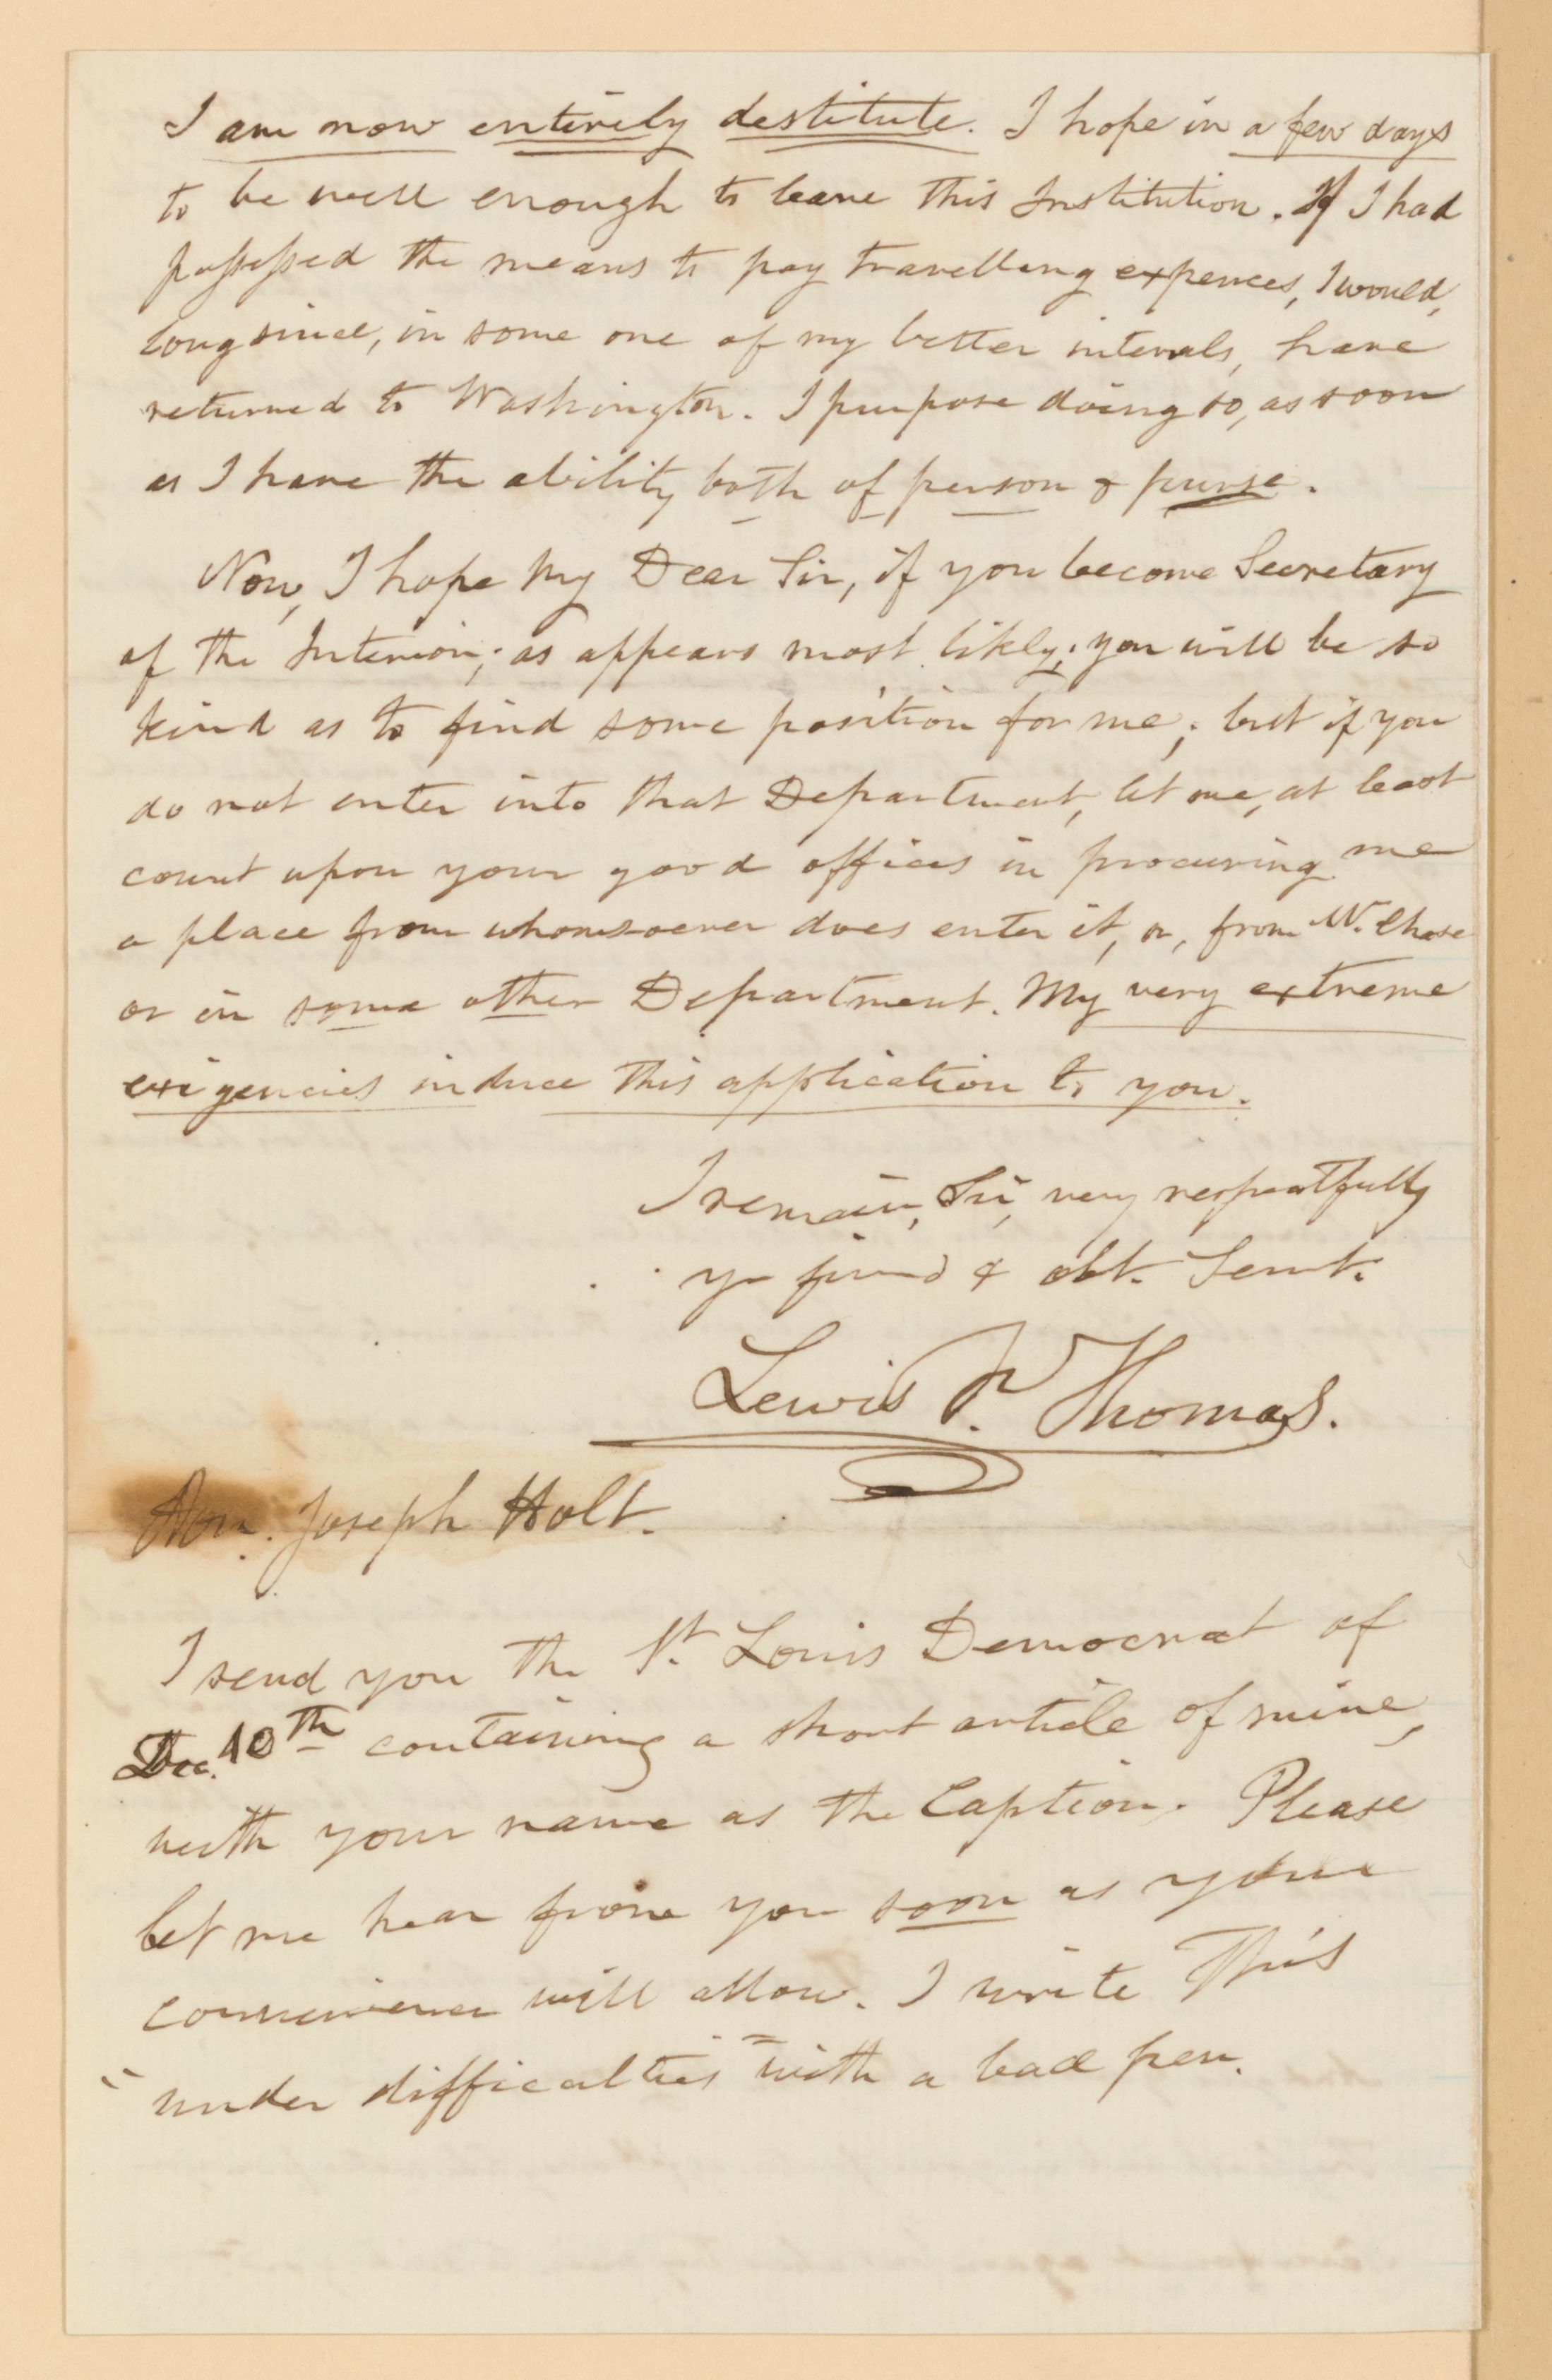 I am now entirely destitute. I hope in a few days
to be well enough to leave this Institution. If I had
possessed the means to pay travelling expences, I would,
long since, in some one of my better intervals, have
returned to Washington. I purpose doing so, as soon
as I have the ability both of person & purse.
Now, I hope my Dear Sir, if you become Secretary
of the Interior; as appears most likely; you will be so
kind as to find some position for me; but if you
do not enter into that Department, let me, at least
count upon your good offices in procuring me
a place from whomsoever does enter it, or, from Mr. Chase
or in some other Department. My very extreme
exigencies induce this application to you.
I remain, Sir, very respectfully
yr friend & obt. Servt.
Lewis F. Thomas.
Hon. Joseph Holt.
I send you the St. Louis Democrat of
Dec. 10th containing a short article of mine,
with your name as the Caption. Please
let me hear from you soon as your
convenience will allow. I write this
"under difficulties" with a bad pen.